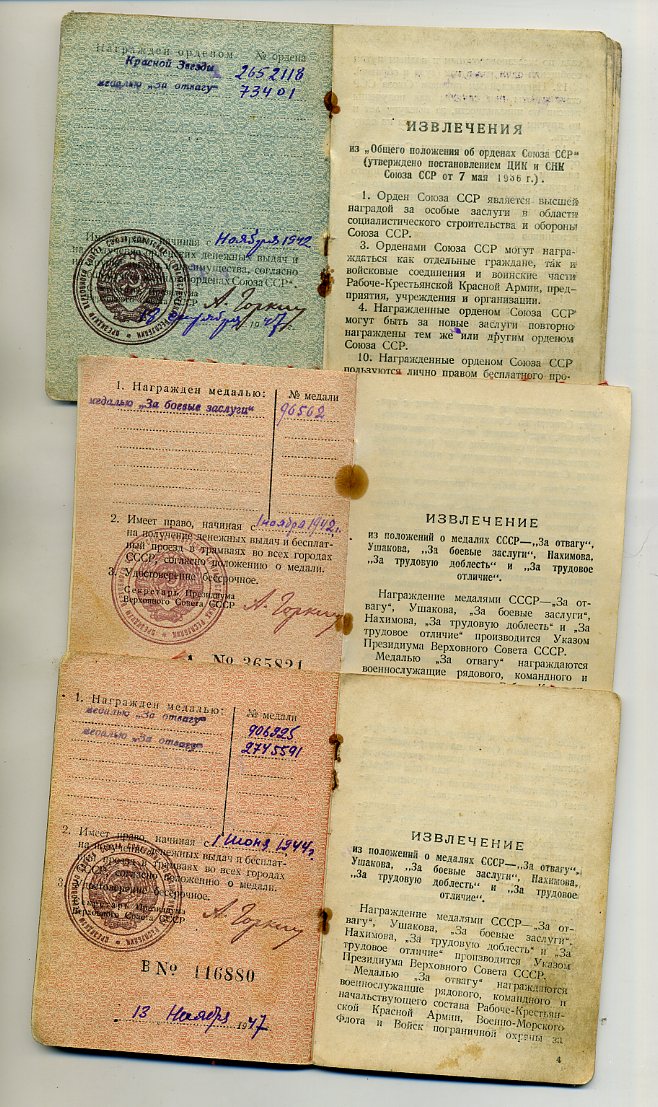 Награжден орденом № ордена
Красной Звезды 2652118
медалью „За отвагу" 73401
Имеет право, начиная с Ноября 1942
на получение орденских денежных выдач и
преимущества, согласно
А. Горкин
1947
ИЗВЛЕЧЕНИЯ
из „Общего положения об орденах Союза ССР"
(утверждено постановлением ЦИК и СНК
Союза ССР от 7 мая 1936 г.).
1. Орден Союза ССР является высшей
наградой за особые заслуги в области
социалистического строительства и обороны
Союза ССР.
3. Орденами Союза ССР могут награ-
ждаться как отдельные граждане, так и
войсковые соединения и воинские части
Рабоче-Крестьянской Красной Армии, пред-
приятия, учреждения и организации.
4. Награжденные орденом Союза ССР
могут быть за новые заслуги повторно
награждены тем же или другим орденом
Союза ССР.
10. Награжденные орденом Союза ССР
пользуются лично правом бесплатного про-
1. Награжден медалью: № медали
медалью „За боевые заслуги" 96562
2. Имеет право, начиная с 1 ноября 1942 г.
на получение денежных выдач и бесплат-
ный проезд в трамваях во всех городах
СССР, согласно положению о медали.
3. Удостоверение бессрочное.
Секретарь Президиума
Верховного Совета СССР А. Горкин
А № 265821
ИЗВЛЕЧЕНИЕ
из положений о медалях СССР—„За отвагу",
Ушакова, „За боевые заслуги", Нахимова,
„За трудовую доблесть" и „За трудовое
отличие".
Награждение медалями СССР—„За от-
вагу", Ушакова, „За боевые заслуги",
Нахимова, „За трудовую доблесть" и „За
трудовое отличие" производится Указом
Президиума Верховного Совета СССР.
Медалью „За отвагу" награждаются
военнослужащие рядового, командного и
1. Награжден медалью: № медали
медалью „За отвагу" 906925
медалью „За отвагу" 2745591
2. Имеет право, начиная с 1 Июня 1944 г.
на получение денежных выдач и бесплат-
ный проезд в трамваях во всех городах
СССР, согласно положению о медали.
Удостоверение бессрочное.
Секретарь Президиума
Верховного Совета СССР А. Горкин
В № 116880
13 Ноября 1947
ИЗВЛЕЧЕНИЕ
из положений о медалях СССР—„За отвагу",
Ушакова, „За боевые заслуги", Нахимова,
„За трудовую доблесть" и „За трудовое
отличие".
Награждение медалями СССР—„За от-
вагу", Ушакова, „За боевые заслуги",
Нахимова, „За трудовую доблесть" и „За
трудовое отличие" производится Указом
Президиума Верховного Совета СССР.
Медалью „За отвагу" награждаются
военнослужащие рядового, командного и
начальствующего состава Рабоче-Крестьян-
ской Красной Армии, Военно-Морского
Флота и Войск пограничной охраны за
4